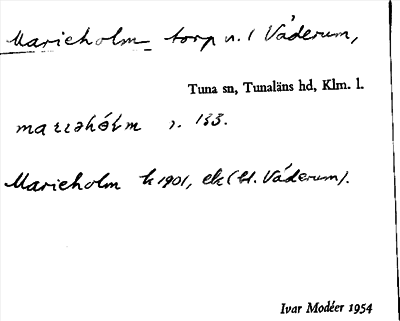 Marieholm torp u. / Väderum,
Tuna sn, Tunaläns hd, Klm. l.
s. 133.
Marieholm k 1901, ek (bl. Väderum).
Ivar Modéer 1954